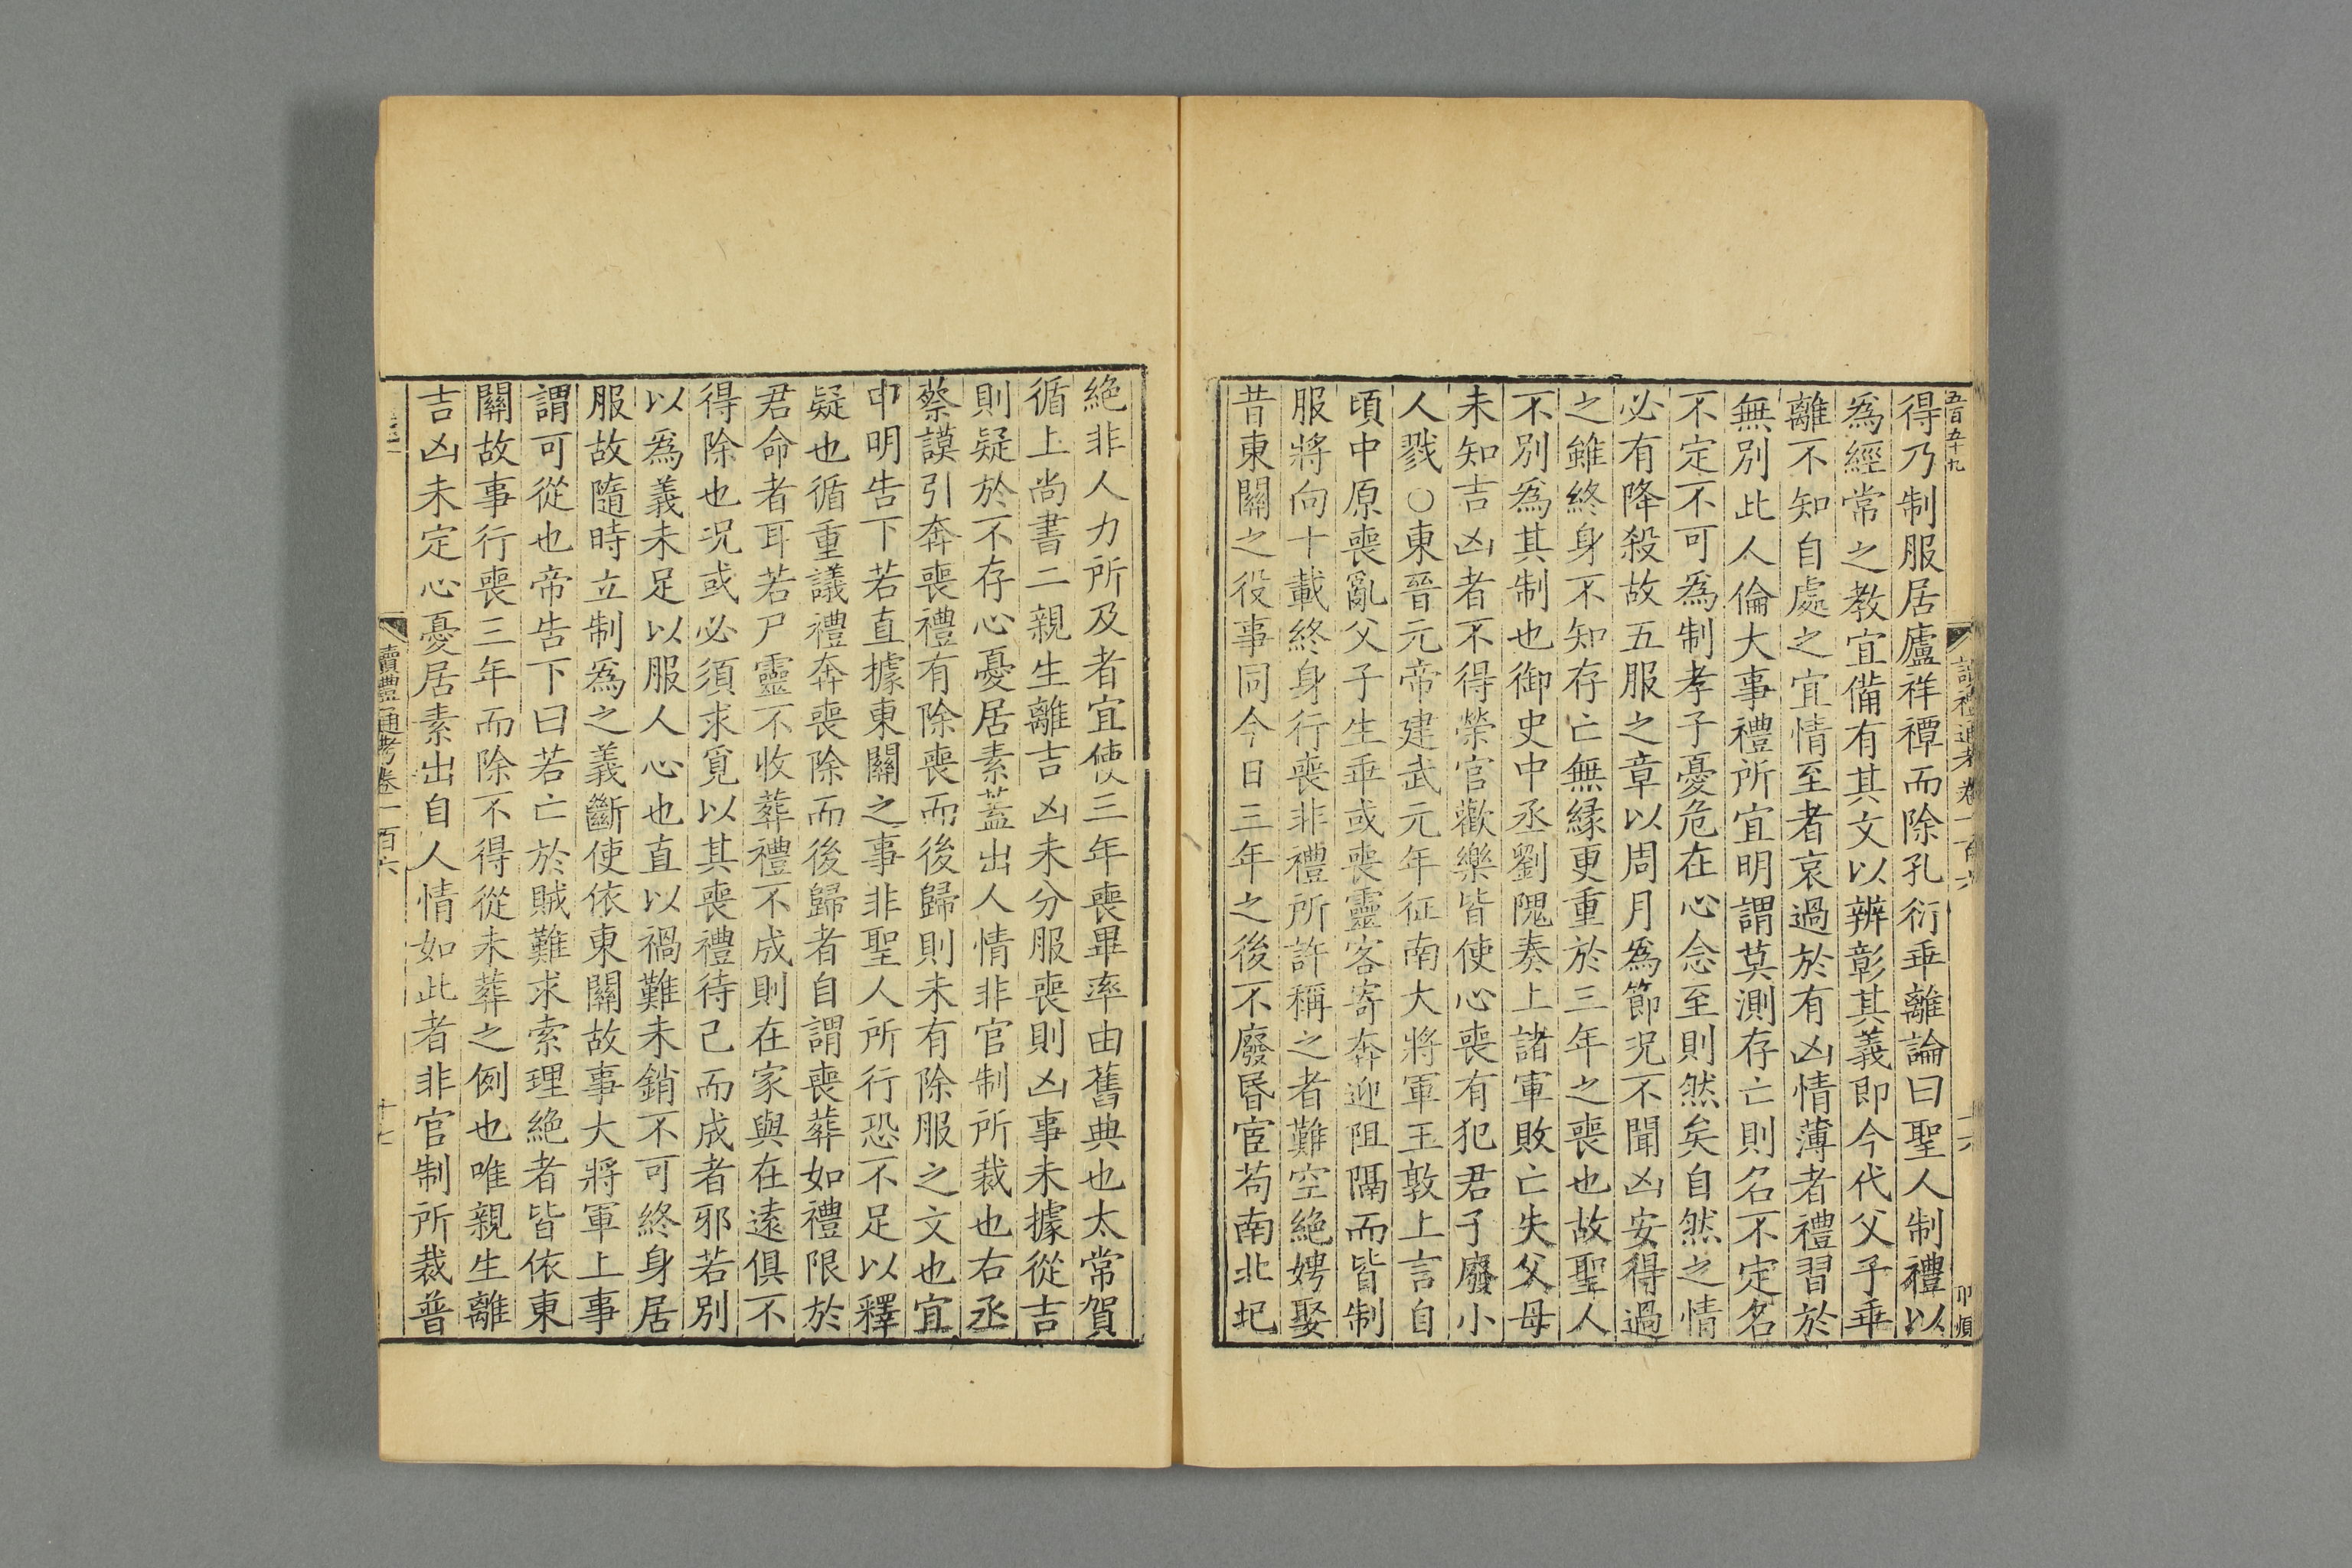 五百五十九
讀禮通考卷一百六
十六
得乃制服居廬祥禫而除孔衍乖離論曰聖人制禮以
爲經常之教宜備有其文以辨彰其義即今代父子乖
離不知自處之宜情至者哀過於有凶情薄者禮習於
無別此人倫大事禮所宜明謂莫測存亡則名不定名
不定不可爲制孝子憂危在心念至則然矣自然之情
必有降殺故五服之章以周月爲節況不聞凶安得過
之雖終身不知存亡無緣更重於三年之喪也故聖人
不別爲其制也御史中丞劉隗奏上諸軍敗亡失父母
未知吉凶者不得榮官歡樂皆使心喪有犯君子廢小
人戮○東晉元帝建武元年征南大將軍王敦上言自
頃中原喪亂父子生乖或喪靈客寄奔迎阻隔而皆制
服將向十載終身行喪非禮所許稱之者難空絕娉娶
昔東關之役事同今日三年之後不廢昏宦苟南北圯
絕非人力所及者宜使以三年喪畢率由舊典也太常賀
循上尚書二親生離吉凶未分服喪則凶事未據從吉
則疑於不存心憂居素蓋出人情非官制所裁也右丞
蔡謨引奔喪禮有除喪而後歸則未有除服之文也宜
申明告下若直據東關之事非聖人所行恐不足以釋
疑也循重議禮奔喪除而後歸者自謂喪葬如禮限於
君命者耳若尸靈不收葬禮不成則在家與在遠俱不
得除也況或必須求覓以其喪禮待己而成者邪若別
以爲義未足以服人心也直以禍難未銷不可終身居
服故隨時立制爲之義斷使依東關故事大將軍上事
謂可從也帝告下曰若亡於賊難求索理絕者皆依東
關故事行喪三年而除不得從未葬之例也唯親生離
吉凶未定心憂居素出自人情如此者非官制所裁普
讀禮通考卷一百六
十七